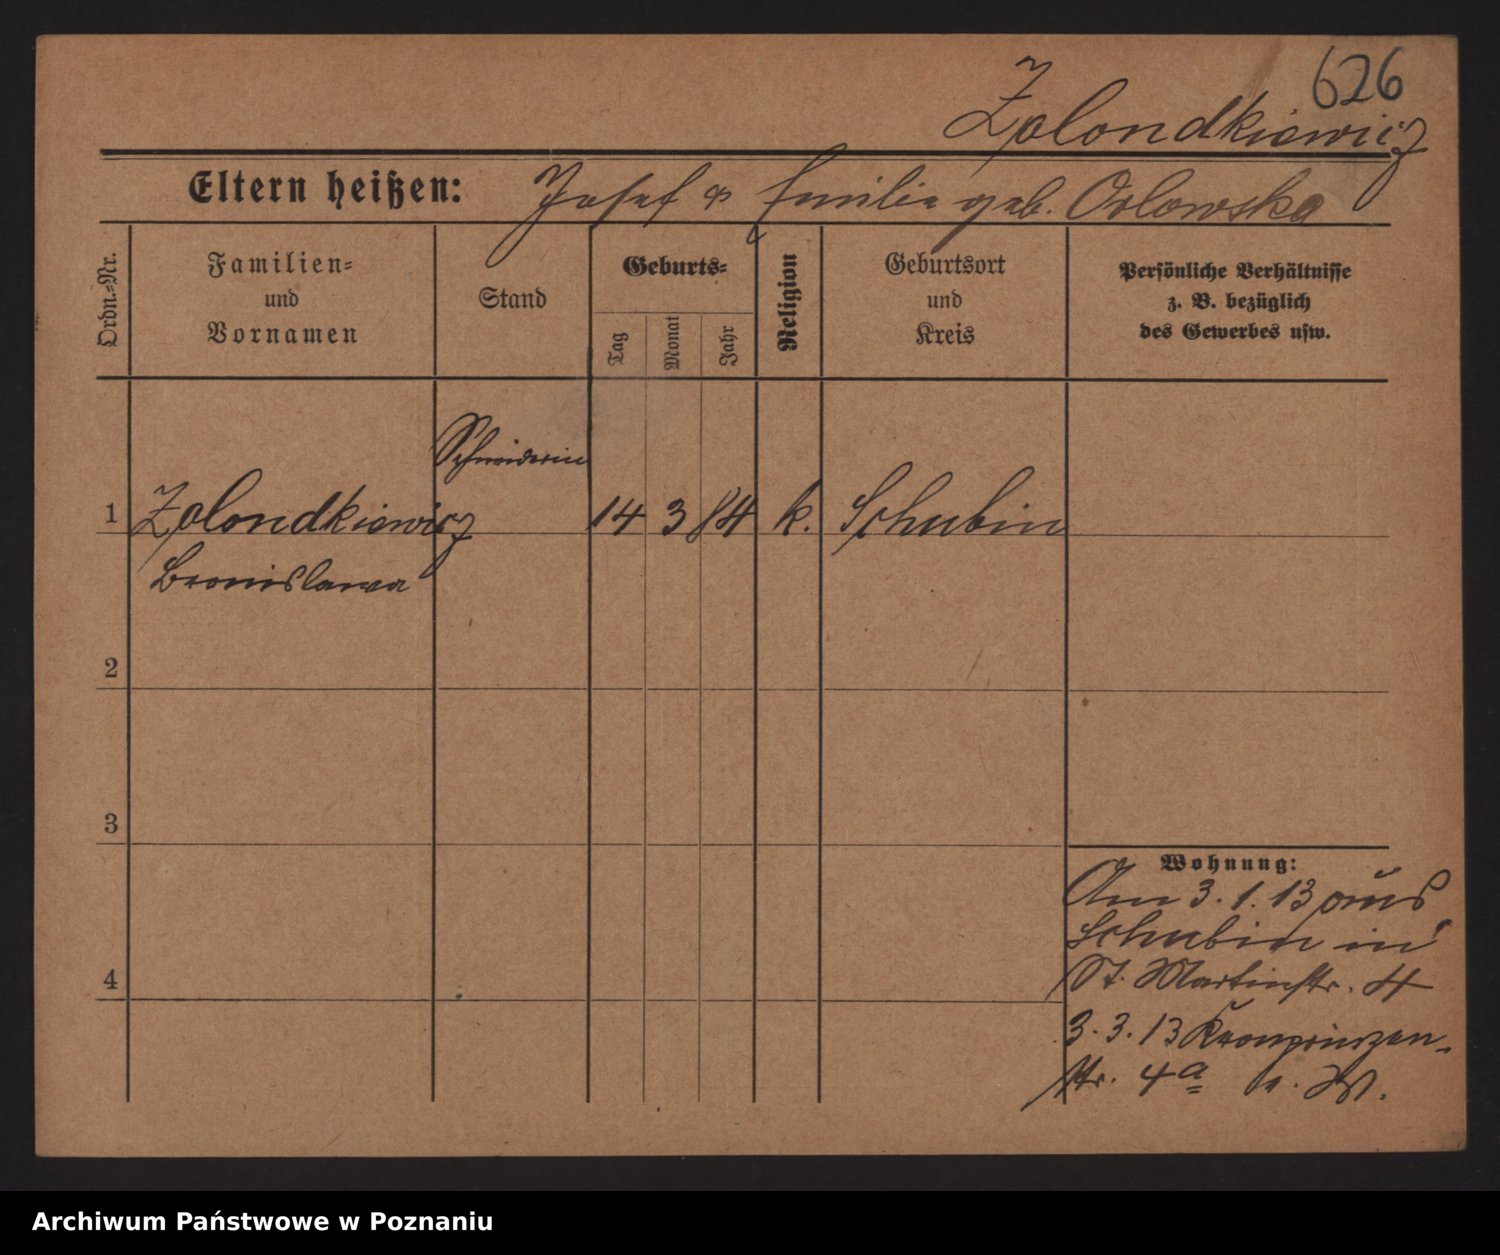 626
Zolondkiewicz
Eltern heißen: Josef & Emilie geb. Orlowska
Ordn.-Nr.
Familien-
und
Vornamen
Stand
Geburts-
Tag
Monat
Jahr
Religion
Geburtsort
und
Kreis
Persönliche Verhältnisse
z. B. bezüglich
des Gewerbes usw.
Schneiderin
1 Zolondkiewicz 14 3 84 k. Schubin
Bronislawa
2
3
4
Wohnung:
Am 3.1.13 aus
Schubin in
St. Martinstr. 4
3.3.13 Kronprinzen-
str. 4a
Archiwum Państwowe w Poznaniu